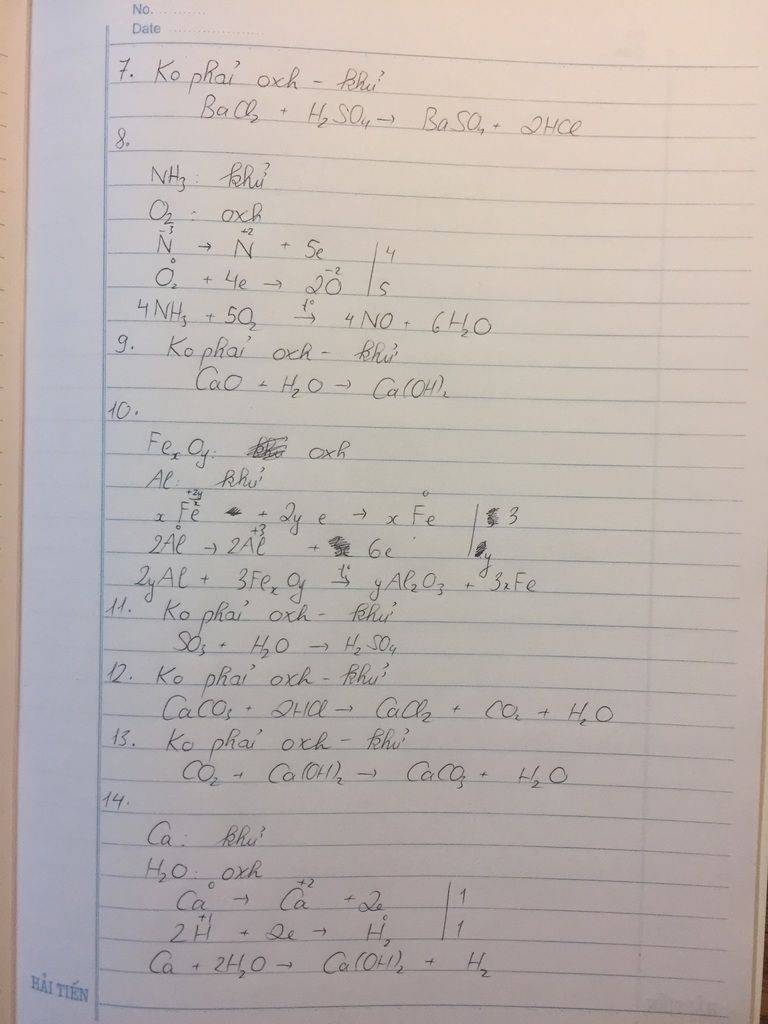 No. ..........
Date ....................
7. Ko phải oxh - khử
BaCl₂ + H₂SO₄ → BaSO₄ + 2HCl
8.
NH₃: khử
O₂ : oxh
N⁻³ → N⁺² + 5e | 4
O₂⁰ + 4e → 2O⁻² | 5
4NH₃ + 5O₂ →(t°) 4NO + 6H₂O
9. Ko phải oxh - khử
CaO + H₂O → Ca(OH)₂
10.
FeₓOy: oxh
Al: khử
x Fe⁺²ʸ/ˣ + 2y e → x Fe⁰ | 3
2Al⁰ → 2Al⁺³ + 6e | y
2yAl + 3FeₓOy →(t°) yAl₂O₃ + 3xFe
11. Ko phải oxh - khử
SO₃ + H₂O → H₂SO₄
12. Ko phải oxh - khử
CaCO₃ + 2HCl → CaCl₂ + CO₂ + H₂O
13. Ko phải oxh - khử
CO₂ + Ca(OH)₂ → CaCO₃ + H₂O
14.
Ca: khử
H₂O: oxh
Ca⁰ → Ca⁺² + 2e | 1
2H⁺¹ + 2e → H₂⁰ | 1
Ca + 2H₂O → Ca(OH)₂ + H₂
HẢI TIẾN